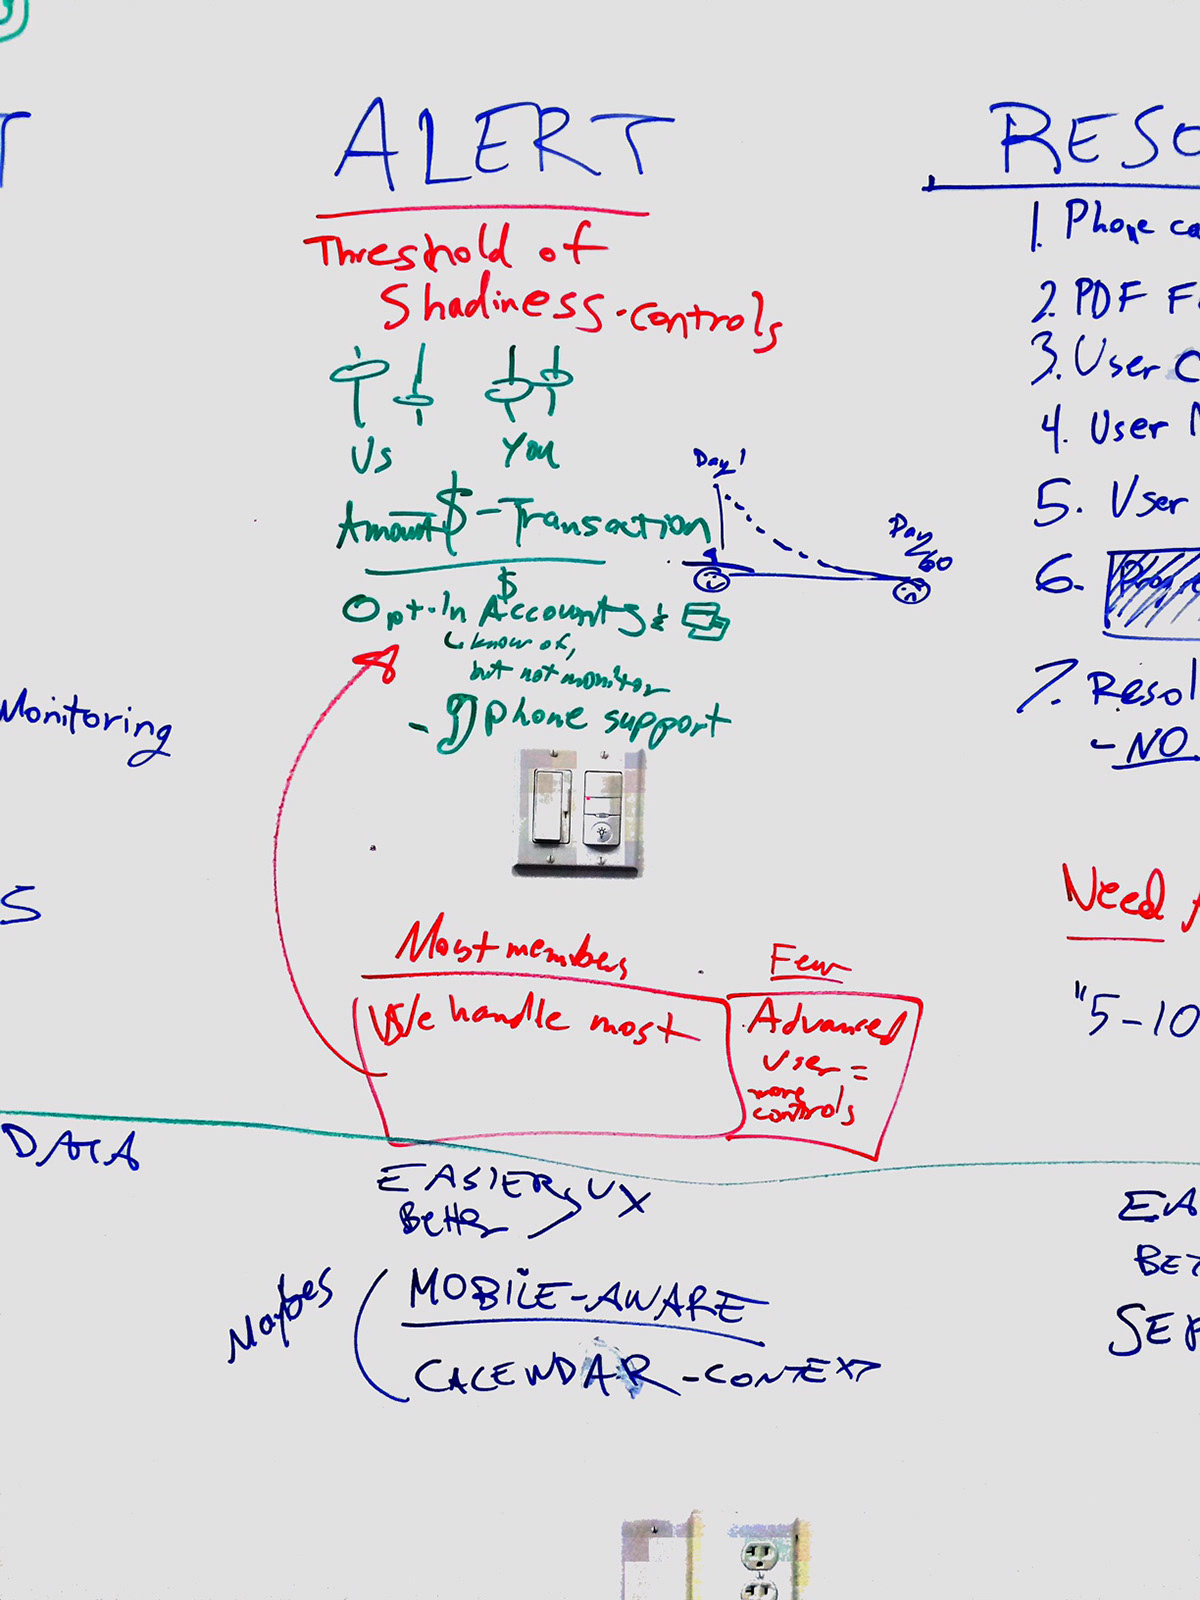 ALERT
Threshold of
Shadiness-controls
Us
You
Amount $ - Transaction
$
Opt-In Accounts &
know of,
but not monitor
- phone support
Day 1
Day 60
Monitoring
S
Most members
We handle most
Few
Advanced
User =
more
controls
DATA
EASIER
Better
UX
Maybes
MOBILE-AWARE
CALENDAR-CONTEXT
RESO
1. Phone ca
2. PDF F
3. User
4. User
5. User
6.
7. Resol
- NO
Need
"5-10
EA
BET
SE